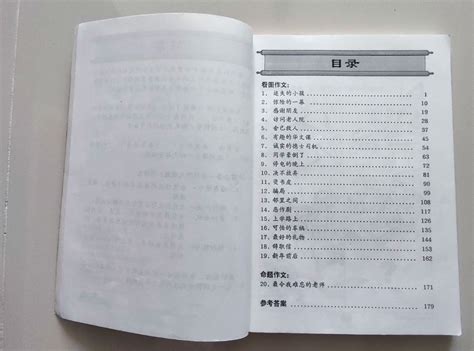 目录
看图作文：
1、迷失的小孩 1
2、惊险的一幕 10
3、感谢朋友 19
4、访问老人院 28
5、舍己救人 37
6、有趣的华文课 45
7、诚实的德士司机 54
8、同学晕倒了 63
9、停电的晚上 72
10、决不放弃 81
11、烫书皮 90
12、骗局 99
13、邻里之间 108
14、恶作剧 117
15、上学路上 126
16、可怕的车祸 135
17、最好的礼物 144
18、辞职信 153
19、新年前后 162
命题作文：
20、最令我难忘的老师 171
参考答案 179